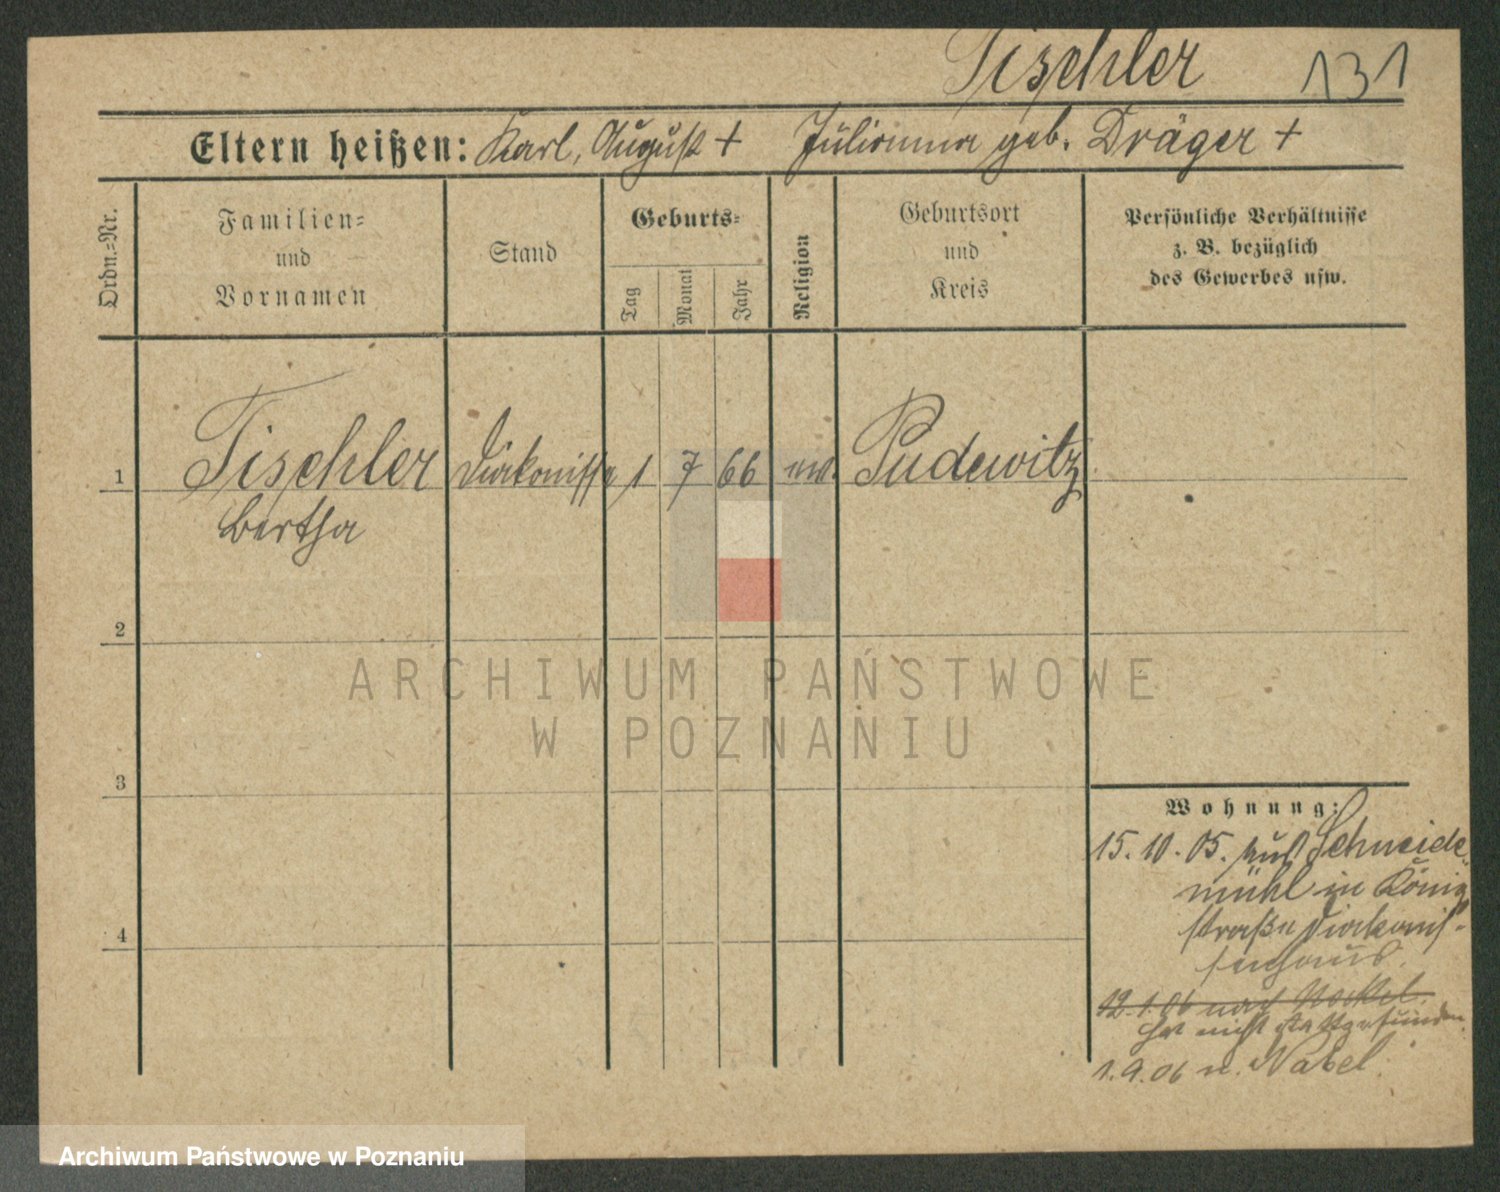 Tischler 131
Eltern heißen: Karl, August + Julianna geb. Dräger +
Ordn.=Nr.
Familien=
und
Vornamen
Stand
Geburts=
Tag
Monat
Jahr
Religion
Geburtsort
und
Kreis
Persönliche Verhältnisse
z. B. bezüglich
des Gewerbes usw.
1 Tischler Diakonisse 1 7 66 ev. Pudewitz
Bertha
2
3
4
Wohnung:
15. 10. 05. aus Schneide
mühl in König
straße Diakonis-
senhaus.
12.1.06 nach
hat nicht stattgefunden.
1.9.06 n. Nakel.
ARCHIWUM PAŃSTWOWE
W POZNANIU
Archiwum Państwowe w Poznaniu